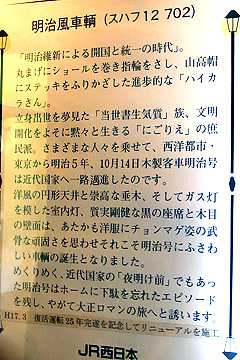 明治風車輌(スハフ12 702)
「明治維新による開国と統一の時代」。
丸まげにショールを巻き指輪をさし、山高帽
にステッキをふりかざした進歩的な「ハイカ
ラさん」。
立身出世を夢見た「当世書生気質」族、文明
開化をよそに黙々と生きる「にごりえ」の庶
民派。さまざまな人々を乗せて、西洋都市・
東京から明治5年、10月14日木製客車明治号
は近代国家へ一路邁進したのです。
洋風の円形天井と崇高な垂木、そしてガス灯
を模した室内灯、質実剛健な黒の座席と木目
の壁面は、あたかも洋服にチョンマゲ姿の武
骨な頑固さを思わせそれこそ明治号にふさわ
しい車輌の誕生となりました。
めくりめく、近代国家の「夜明け前」でもあっ
た明治号はホームに下駄を忘れたエピソード
を残し、やがて大正ロマンの旅へと誘います。
H17.3 復活運転25年完遂を記念してリニューアルを施工
JR西日本